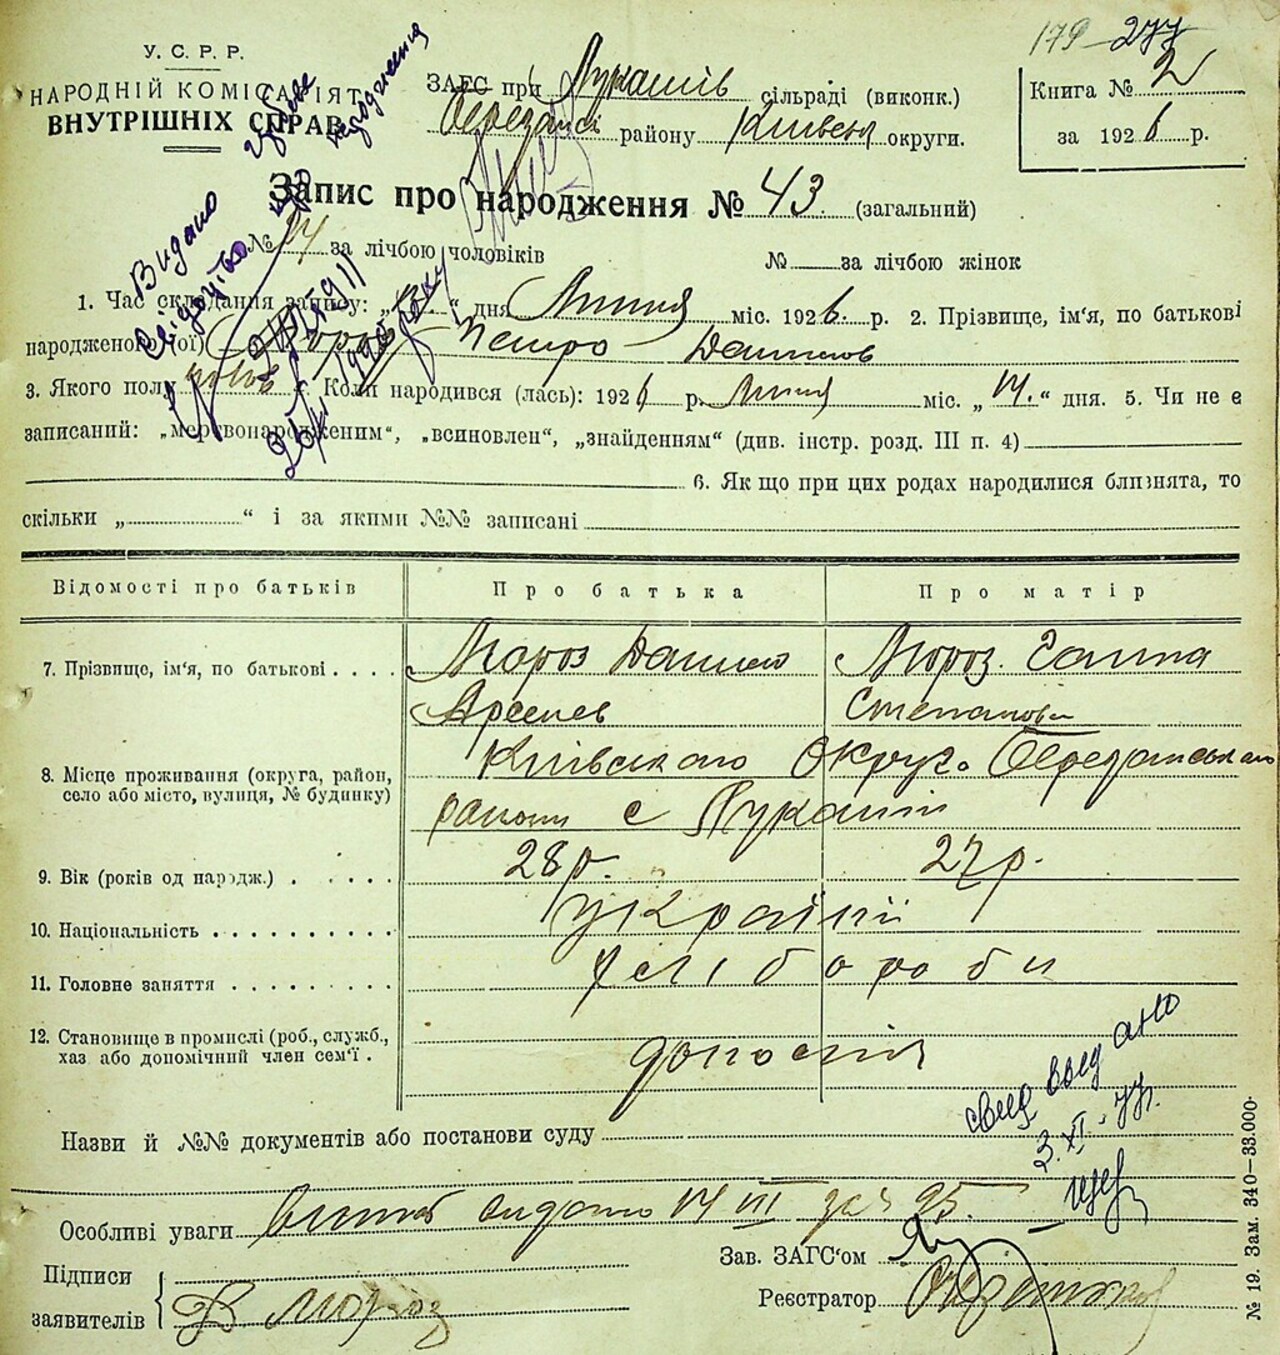 179 - 277
У. С. Р. Р.
НАРОДНІЙ КОМІСАРІЯТ
ВНУТРІШНІХ СПРАВ
ЗАГС при Лукашів сільраді (виконк.)
району Київськ округи.
Книга № 2
за 1926 р.
Видано
свідоцтво про
народження
Запис про народження № 43. (загальний)
№ 14 за лічбою чоловіків № за лічбою жінок
1. Час складання запису: „ “ дня Липня міс. 1926. р. 2. Прізвище, ім'я, по батькові
народженого (ої) Мороз Петро Данилов
3. Якого полу чолов 4. Коли народився (лась): 1926 р. Липня міс. „14.“ дня. 5. Чи не є
записаний: „мертвонародженим“, „всиновлен“, „знайденням“ (див. інстр. розд. III п. 4)
6. Якщо при цих родах народилися близнята, то
скільки „ “ і за якими №№ записані
Відомості про батьків Про батька Про матір
7. Прізвище, ім'я, по батькові . . . . Мороз Данило Мороз. Ганна
Арсенев Степанові
8. Місце проживання (округа, район, село або місто, вулиця, № будинку) Київського Округ.
району с Лукаші
9. Вік (років од народж.) . . . . . 28 р. 27 р.
10. Національність . . . . . . . . . . україні
11. Головне заняття . . . . . . . . . хлібороби
12. Становище в промислі (роб., служб.,
хаз або допомічний член сем'ї .
Назви й №№ документів або постанови суду
свид выдано
3. XI - 77г.
Особливі уваги видано 14 III за № 95.
Зав. ЗАГС'ом
Підписи
заявителів Д Мороз
Реєстратор
№ 19. Зам. 340—33.000.